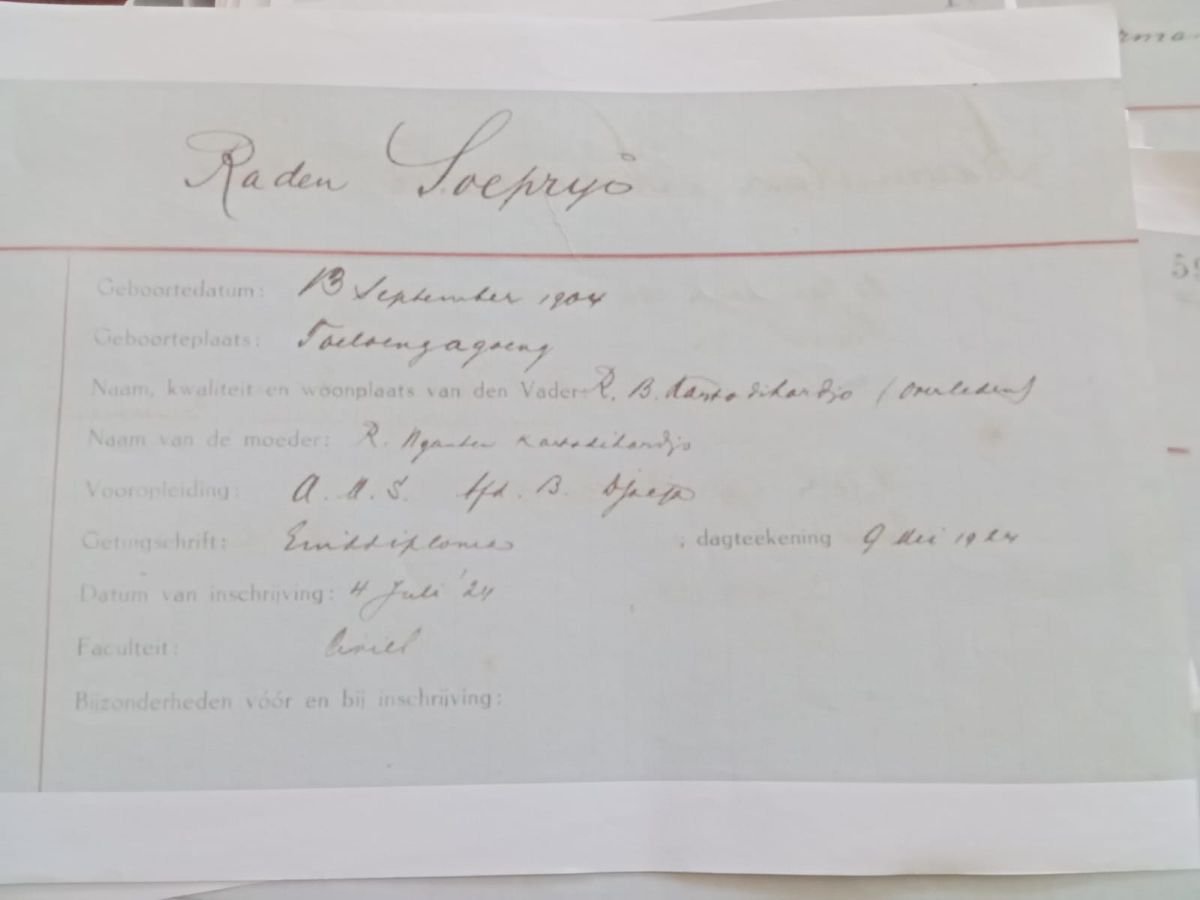 rma-
Raden Soeprijo
59
Geboortedatum: 13 September 1904
Geboorteplaats: Toeloengagoeng
Naam, kwaliteit en woonplaats van den Vader: R. B. Kartodihardjo (overleden)
Naam van de moeder: R. Nganten Kartodihardjo
Vooropleiding: A. M. S. Afd. B. Djocja
Getuigschrift: Einddiploma ; dagteekening 9 Mei 1924
Datum van inschrijving: 4 Juli '24
Faculteit: Civiel
Bijzonderheden vóór en bij inschrijving: